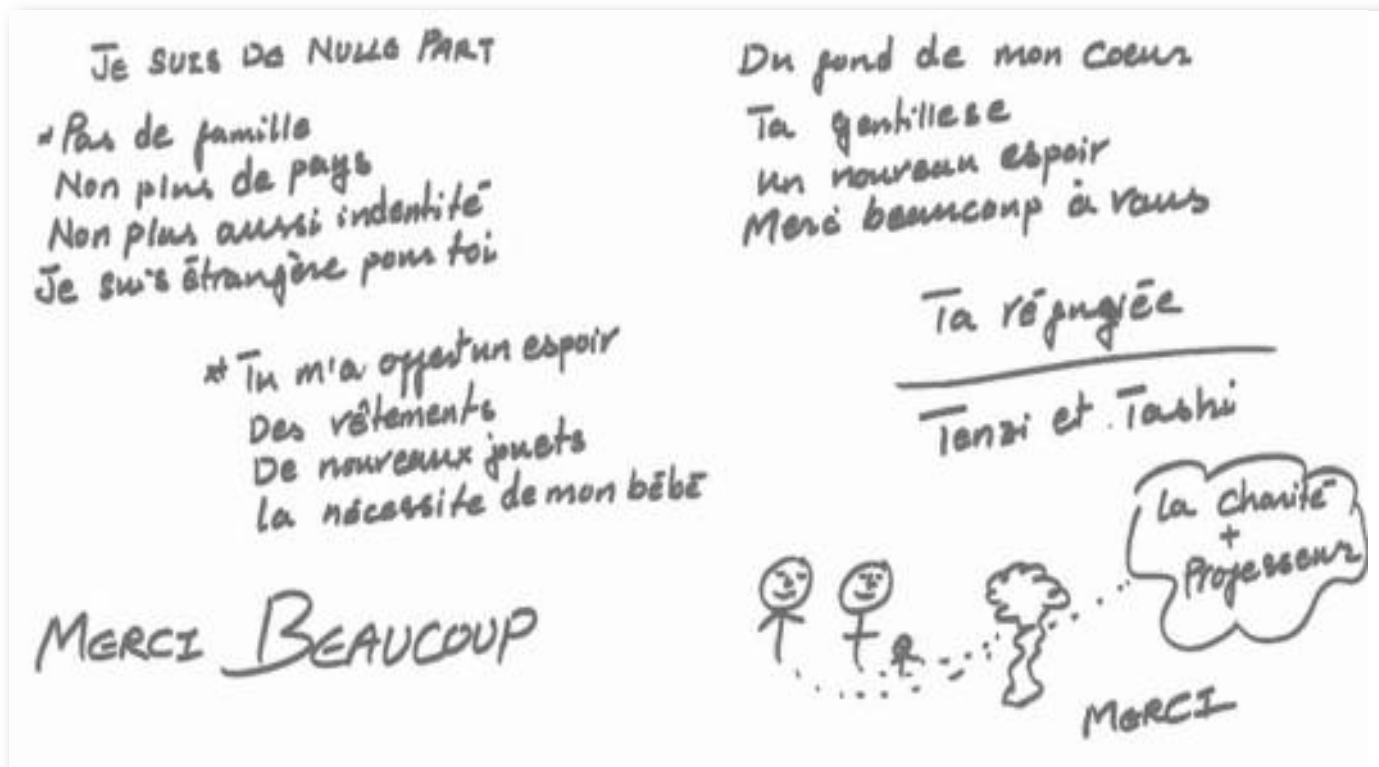 JE SUIS DE NULLE PART
*Pas de famille
Non plus de pays
Non plus aussi indentité
Je suis étrangère pour toi
** Tu m'a offert un espoir
Des vêtements
De nouveaux jouets
la nécessite de mon bébé
MERCI BEAUCOUP
Du fond de mon coeur
Ta gentillese
un nouveau espoir
Merci beaucoup à vous
Ta réfugiée
Tenzi et Tashi
la charité
+
Professeur
MERCI